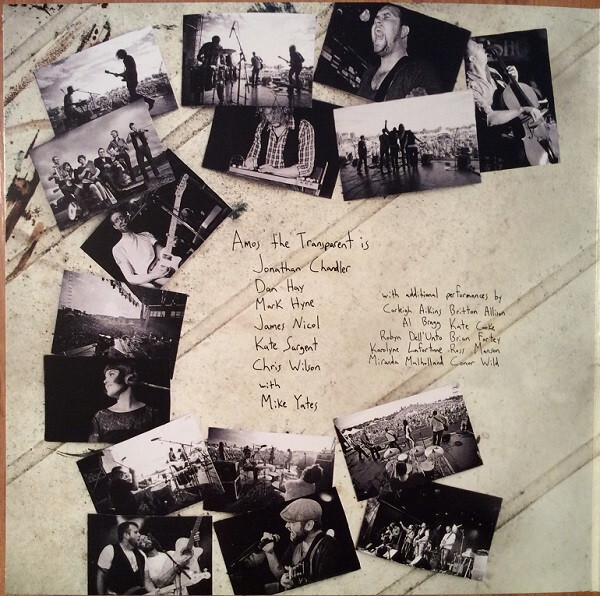 Amos the Transparent is
Jonathan Chandler
Dan Hay
Mark Hyne
James Nicol
Kate Sargent
Chris Wilson
with
Mike Yates
with additional performances by
Carleigh Aikins Britton Allison
Al Bragg Kate Cooke
Robyn Dell'Unto Brian Fortey
Karolyne Lafortune Ross Manson
Miranda Mulholland Conor Wild